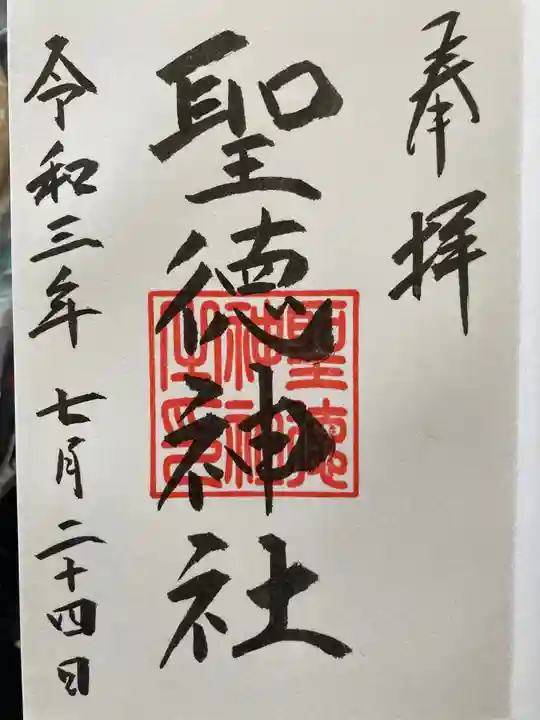 奉拝
聖徳神社
聖徳
神社
之印
令和三年七月二十四日